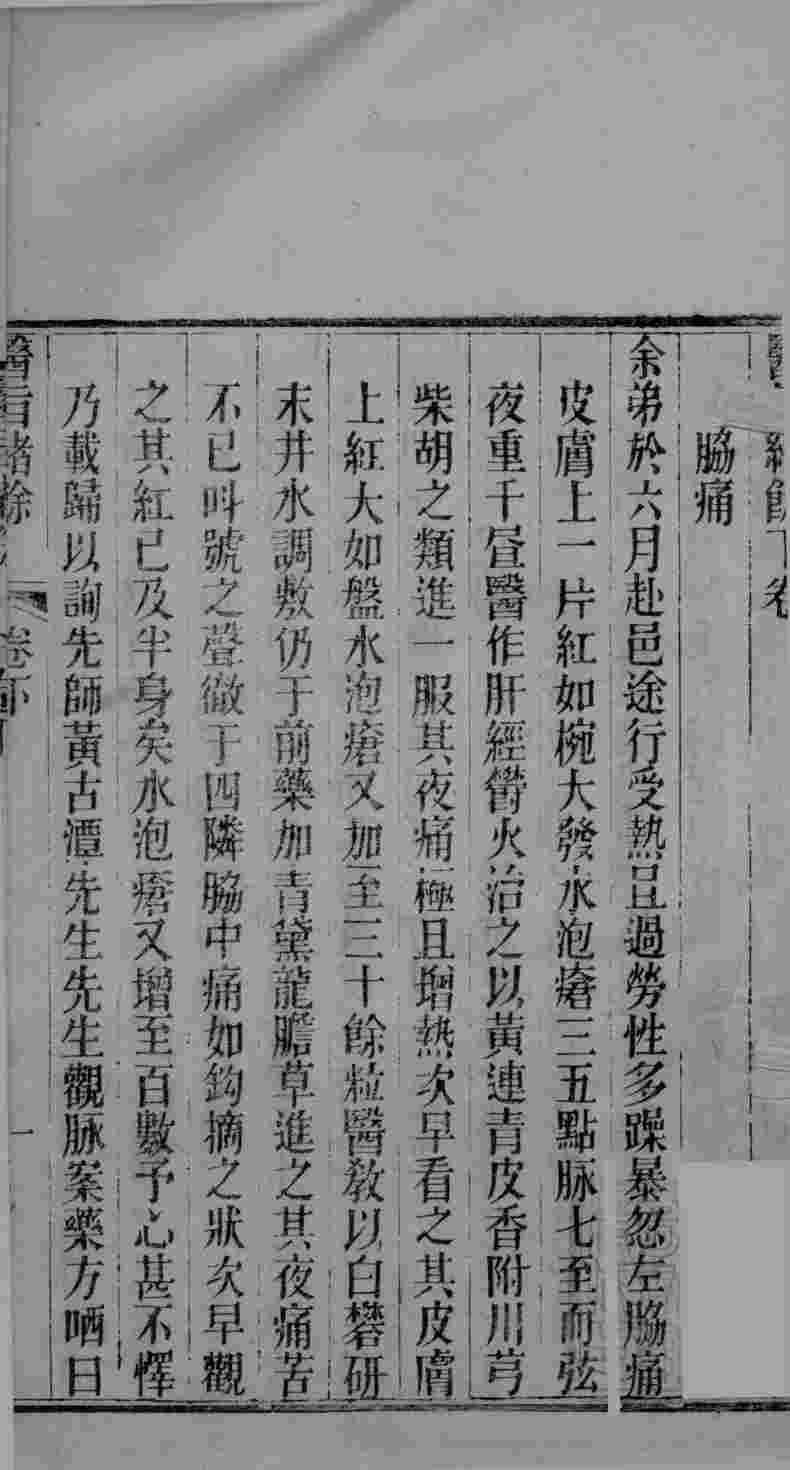 醫 緒餘下卷
脇痛
余弟於六月赴邑途行受熱且過勞性多躁暴忽左脇痛
皮膚上一片紅如椀大發水泡瘡三五點脉七至而弦
夜重于晝醫作肝經鬱火治之以黃連青皮香附川芎
柴胡之類進一服其夜痛極且增熱次早看之其皮膚
上紅大如盤水泡瘡又加至三十餘粒醫教以白礬研
末井水調敷仍于前藥加青黛龍膽草進之其夜痛苦
不已呌號之聲徹于四隣脇中痛如鈎摘之狀次早觀
之其紅已及半身矣水泡瘡又增至百數予心甚不懌
乃載歸以詢先師黃古潭先生先生觀脉案藥方哂曰
醫旨緒餘 卷下 一